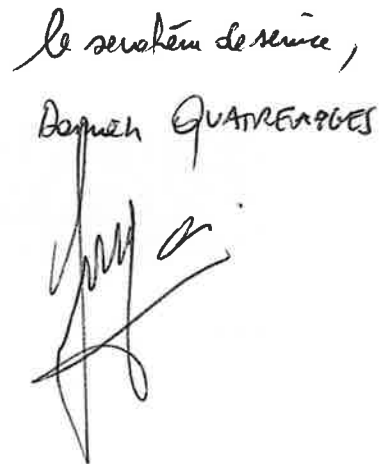 le secrétaire de séance,
Damien QUATREVARGES